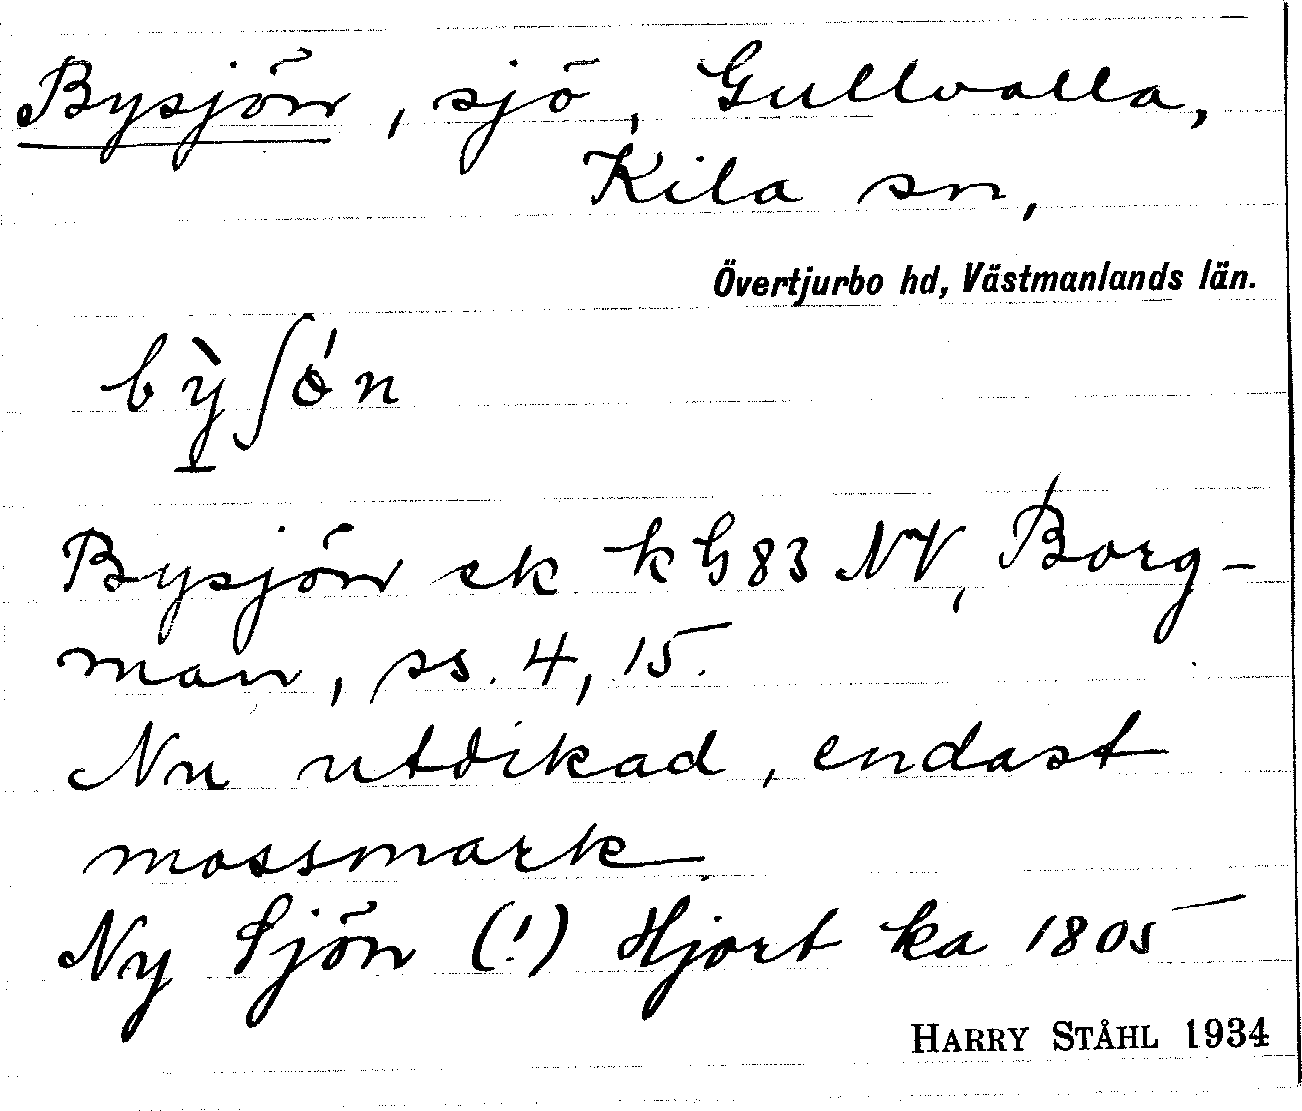 Bysjön, sjö, Gullvalla,
Kila sn,
Övertjurbo hd, Västmanlands län.
bỳʃǿn
Bysjön ek kG83 NV, Borg-
man, ss. 4, 15.
Nu utdikad, endast
mossmark.
Ny Sjön (!) Hjort ka 1805
HARRY STÅHL 1934